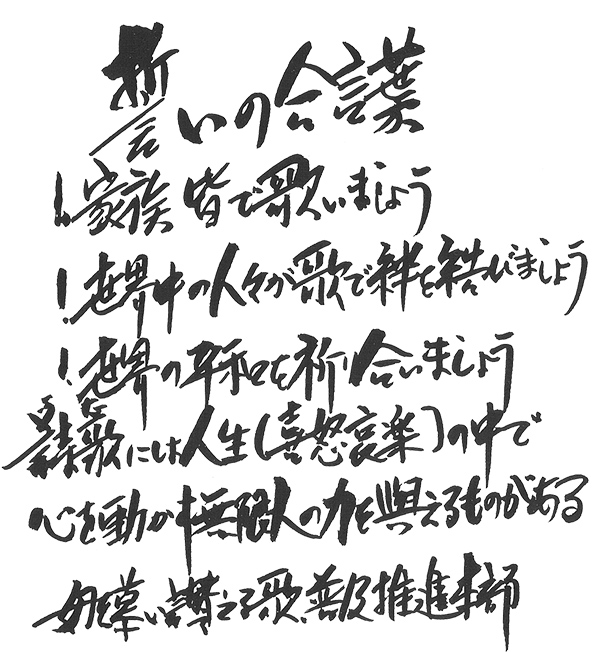 誓いの合言葉
!家族皆で歌いましょう
!世界中の人々が歌で絆を結びましょう
!世界の平和を祈り合いましょう
歌には人生(喜怒哀楽)の中で
心を動かす無限の力を與えるものがある
母を慕い讃える歌、普及推進本部